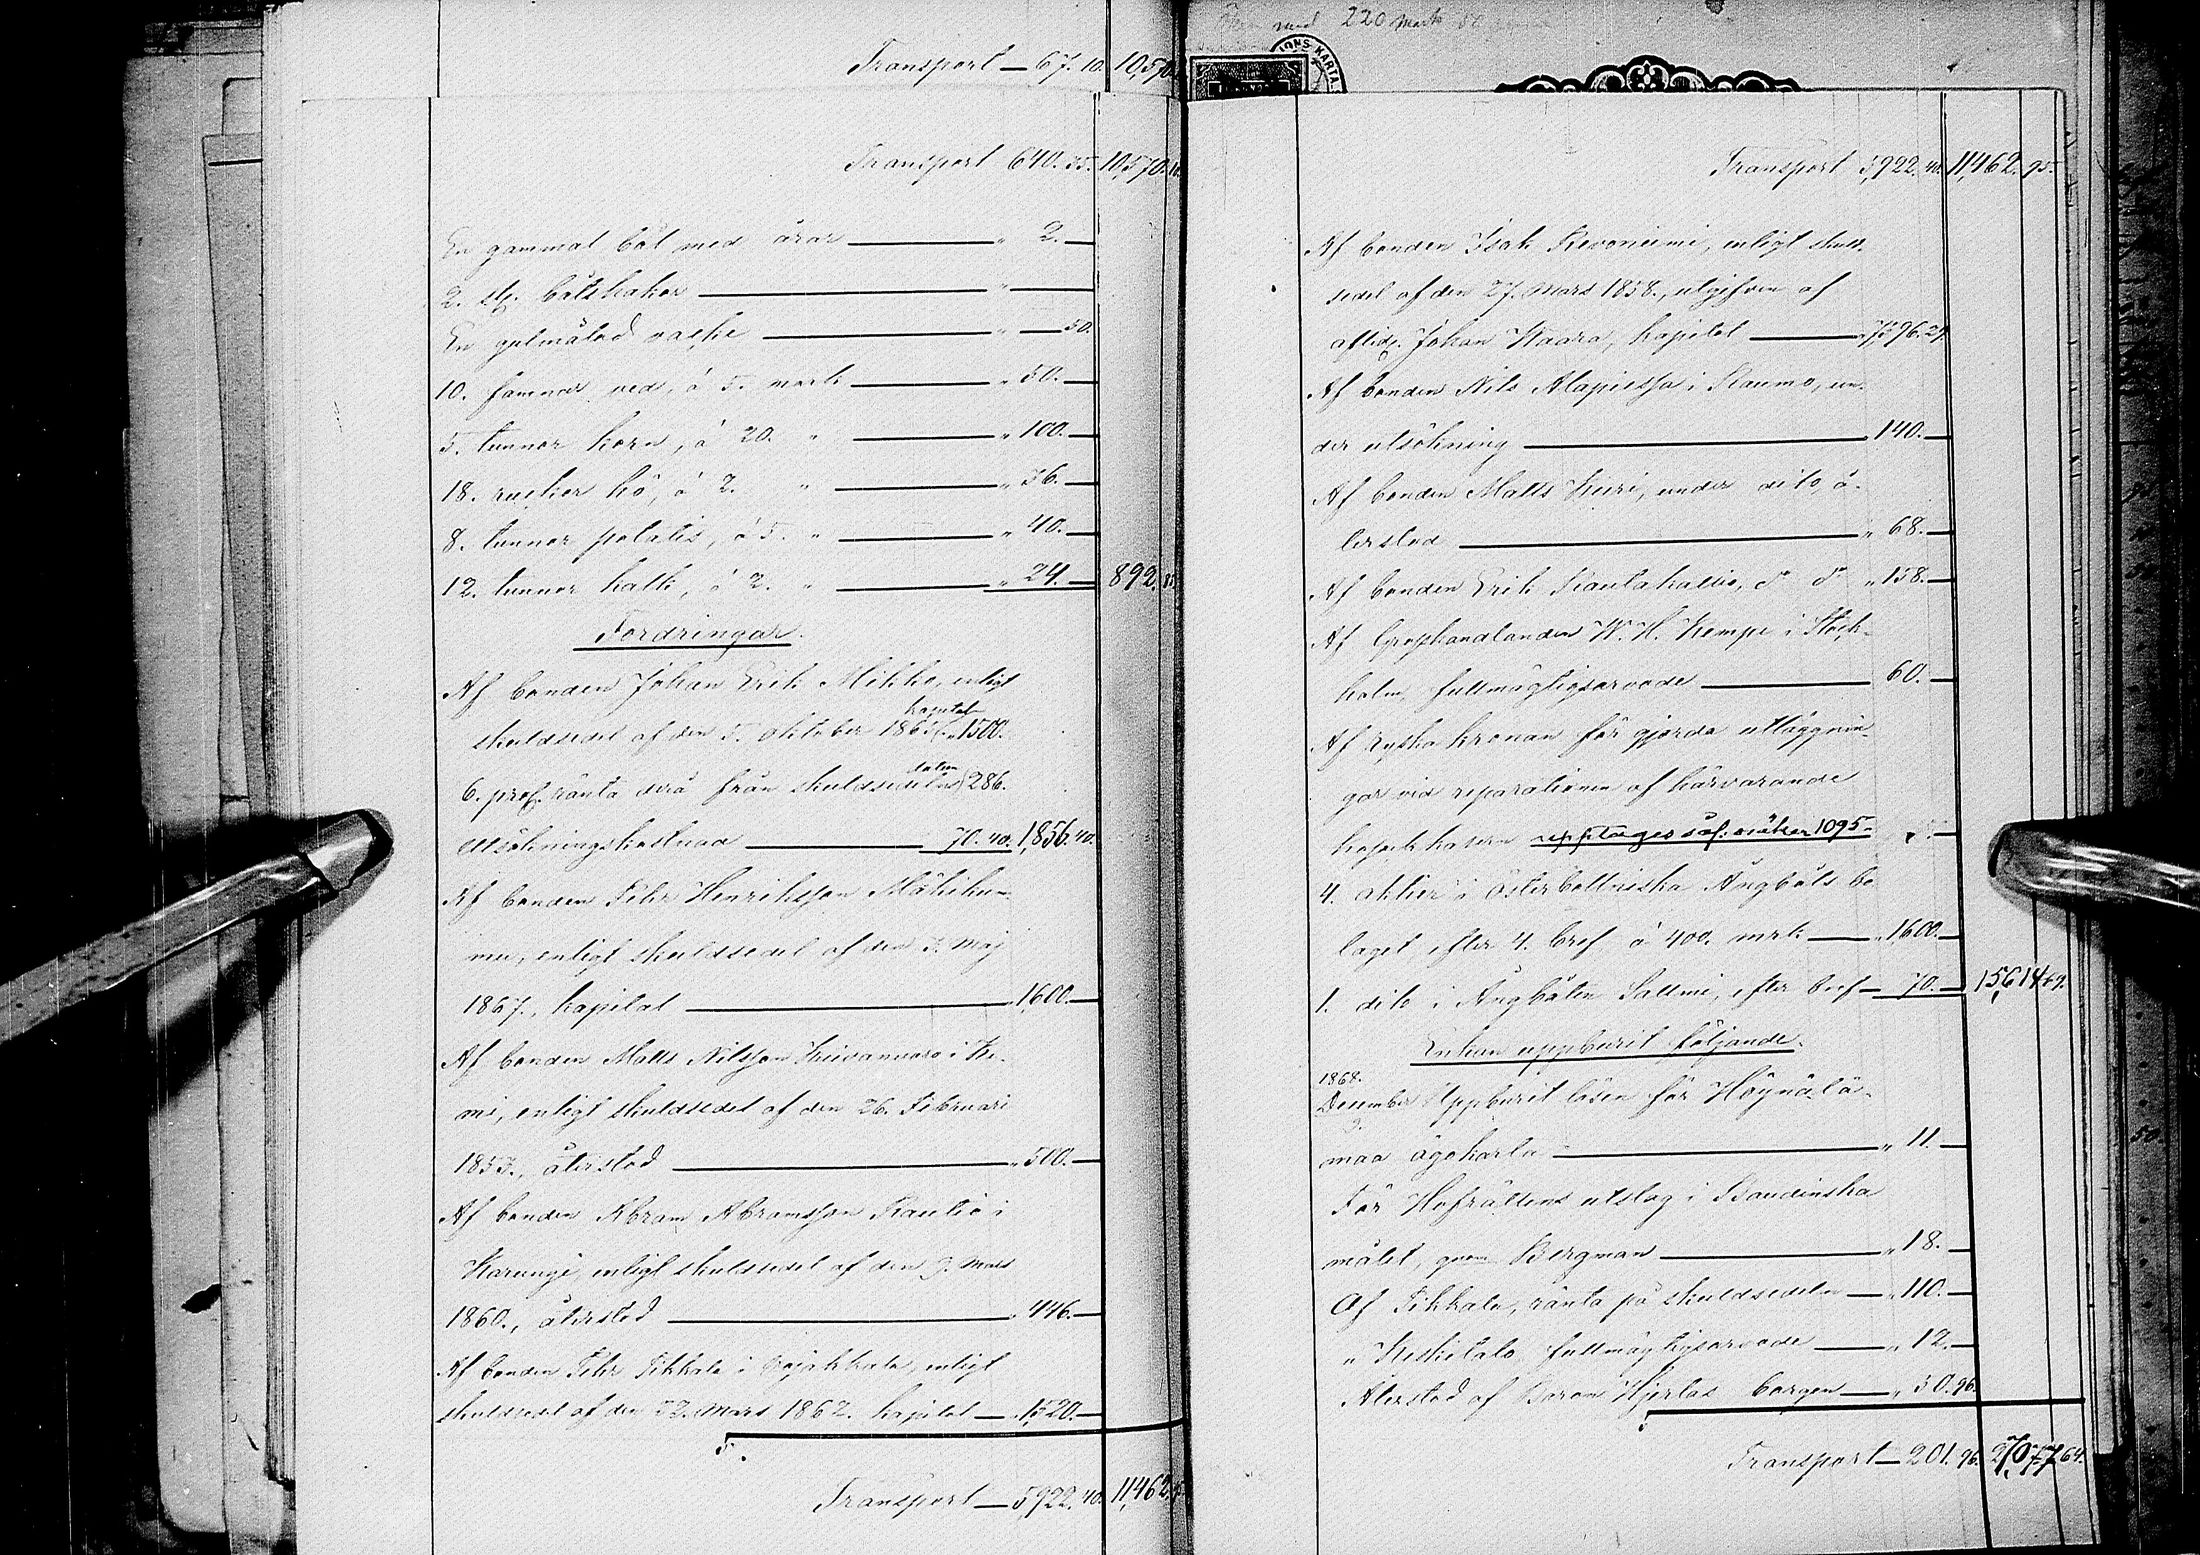 Transport — 67. 10. 10,570.
Transport 640. 35. 10,570. 10.
En gammal båt med åror — " 2. —
2. st. båtshakar — " —
En gulmålad — " — 50.
10. famnar ved, á 5. mark — " 50. —
5. tunnor korn, á 20. " — " 100. —
18. ruskor hö, á 2. " — " 36. —
8. tunnor potatis, á 5. " — " 40. —
12. tunnor kalk, á 2. " — " 24. — 892. 85.
Fordringar.
Af bonden Johan Erik Mikko, enligt
skuldsedel af den 5. oktober 1865, kapital 1500.
6. proc. ränta derå från skuldsedelns datum 286.
Utsökningskostnad — 70. 40. 1,856. 40.
Af bonden Pehr Henriksson
enligt skuldsedel af den 3. Maj
1867., kapital — 1,600. —
Af bonden Matts Nilsson i Ke-
mi, enligt skuldsedel af den 26. Februari
1853., återstod — " 500. —
Af bonden Abram Abramsson Rautio i
Karungi, enligt skuldsedel af den 9. Mars
1860., återstod — " 446. —
Af bonden Pehr Pikkala i Vojakkala, enligt
skuldsedel af den Mars 1862. kapital — 1,520. —
Transport — 5,922. 40. 11,462. 95.
med 220 mark
IONS KARTA.
Transport 5,922. 40. 11,462. 95.
Af bonden Isak Kevoniemi, enligt skuld-
sedel af den 27. Mars 1858., utgifven af
aflidg. Johan Waara, kapital — 7,596. 29.
Af bonden Nils Alapiessa i Raumo, un-
der utsökning — 140. —
Af bonden Matts Kuri, under dito, å-
terstod — " 68. —
Af bonden Erik Rautakallio, do do " 158. —
Af Grosshandlanden W. H. Kempe i Stock-
holm, fullmägtigsarvode — 60. —
Af ryska kronan för gjorda utläggnin-
gar vid reparationen af härvarande
kosackkasern upptages såsom osäker 1095. —
4. aktier i Österbottniska Ångbåts bo-
laget, efter 4. bref á 400. mark — " 1,600. —
1. dito i Ångbåten Sallmi, efter bref — 70. — 15,614. 69.
Enkan uppburit följande.
1868.
December 9. Uppburit lösen för Höynälä-
maa ägokarta — " 11. —
För Hofrättens utslag i Baudinska
målet, genom Bergman — " 18. —
Af Pikkala, ränta på skuldsedeln — " 110. —
" Keskitalo fullmägtigsarvode — " 12. —
Återstod af Baron Hjertas borgen — " 50. 96.
Transport — 201. 96. 27,077. 64.